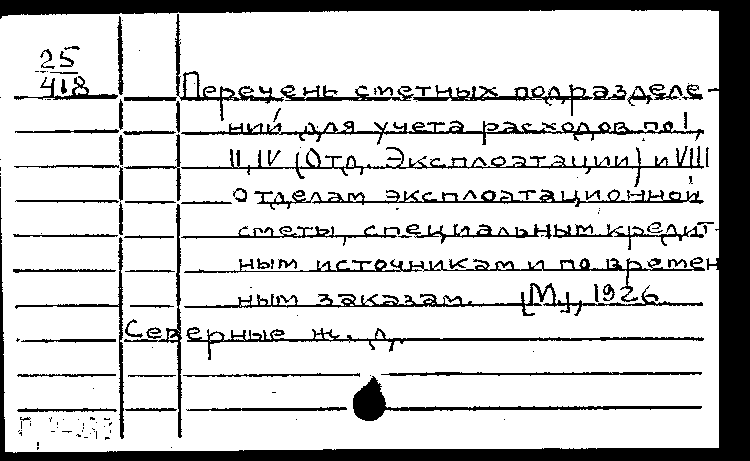 25
418
Перечень сметных подразделе-
ний для учета расходов по I,
II, IV (Отд. Эксплоатации) и VIII
отделам эксплоатационной
сметы, специальным кредит-
ным источникам и по времен
ным заказам. [М], 1926.
Северные ж. д.